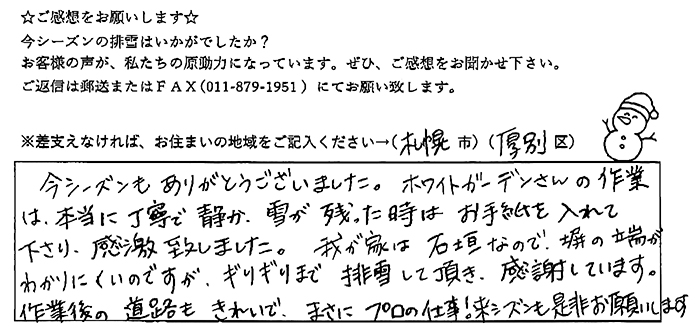 ☆ご感想をお願いします☆
今シーズンの排雪はいかがでしたか？
お客様の声が、私たちの原動力になっています。ぜひ、ご感想をお聞かせ下さい。
ご返信は郵送またはＦＡＸ(011-879-1951）にてお願い致します。
※差支えなければ、お住まいの地域をご記入ください→(札幌市)(厚別区)
今シーズンもありがとうございました。ホワイトガーデンさんの作業
は、本当に丁寧で静か、雪が残った時はお手紙を入れて
下さり、感激致しました。我が家は石垣なので、塀の端が
わかりにくいのですが、ギリギリまで排雪して頂き、感謝しています。
作業後の道路もきれいで、まさにプロの仕事!来シーズンも是非お願いします